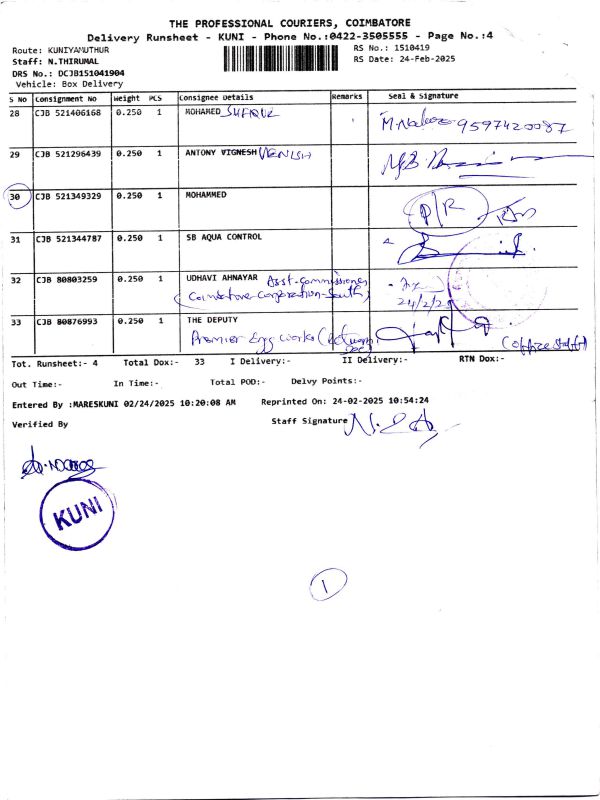 THE PROFESSIONAL COURIERS, COIMBATORE
Delivery Runsheet - KUNI - Phone No.:0422-3505555 - Page No.:4
Route: KUNIYAMUTHUR RS No.: 1510419
Staff: N.THIRUMAL RS Date: 24-Feb-2025
DRS No.: DCJB151041904
Vehicle: Box Delivery
S No Consignment No Weight PCS Consignee Details Remarks Seal & Signature
28 CJB 521406168 0.250 1 MOHAMED 9597420087
29 CJB 521296439 0.250 1 ANTONY VIGNESH
30 CJB 521349329 0.250 1 MOHAMMED P/R
31 CJB 521344787 0.250 1 SB AQUA CONTROL
32 CJB 80803259 0.250 1 UDHAVI AHNAYAR Asst-Commissioner
Coimbatore-Corporation-South) 24/2/25
33 CJB 80876993 0.250 1 THE DEPUTY
Premier Engg Works (office staff)
Tot. Runsheet:- 4 Total Dox:- 33 I Delivery:- II Delivery:- RTN Dox:-
Out Time:- In Time:- Total POD:- Delvy Points:-
Entered By :MARESKUNI 02/24/2025 10:20:08 AM Reprinted On: 24-02-2025 10:54:24
Verified By Staff Signature
KUNI
1